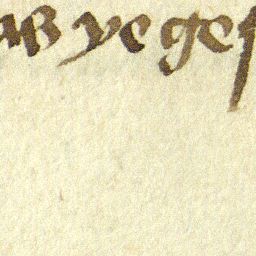 aß ye geſ